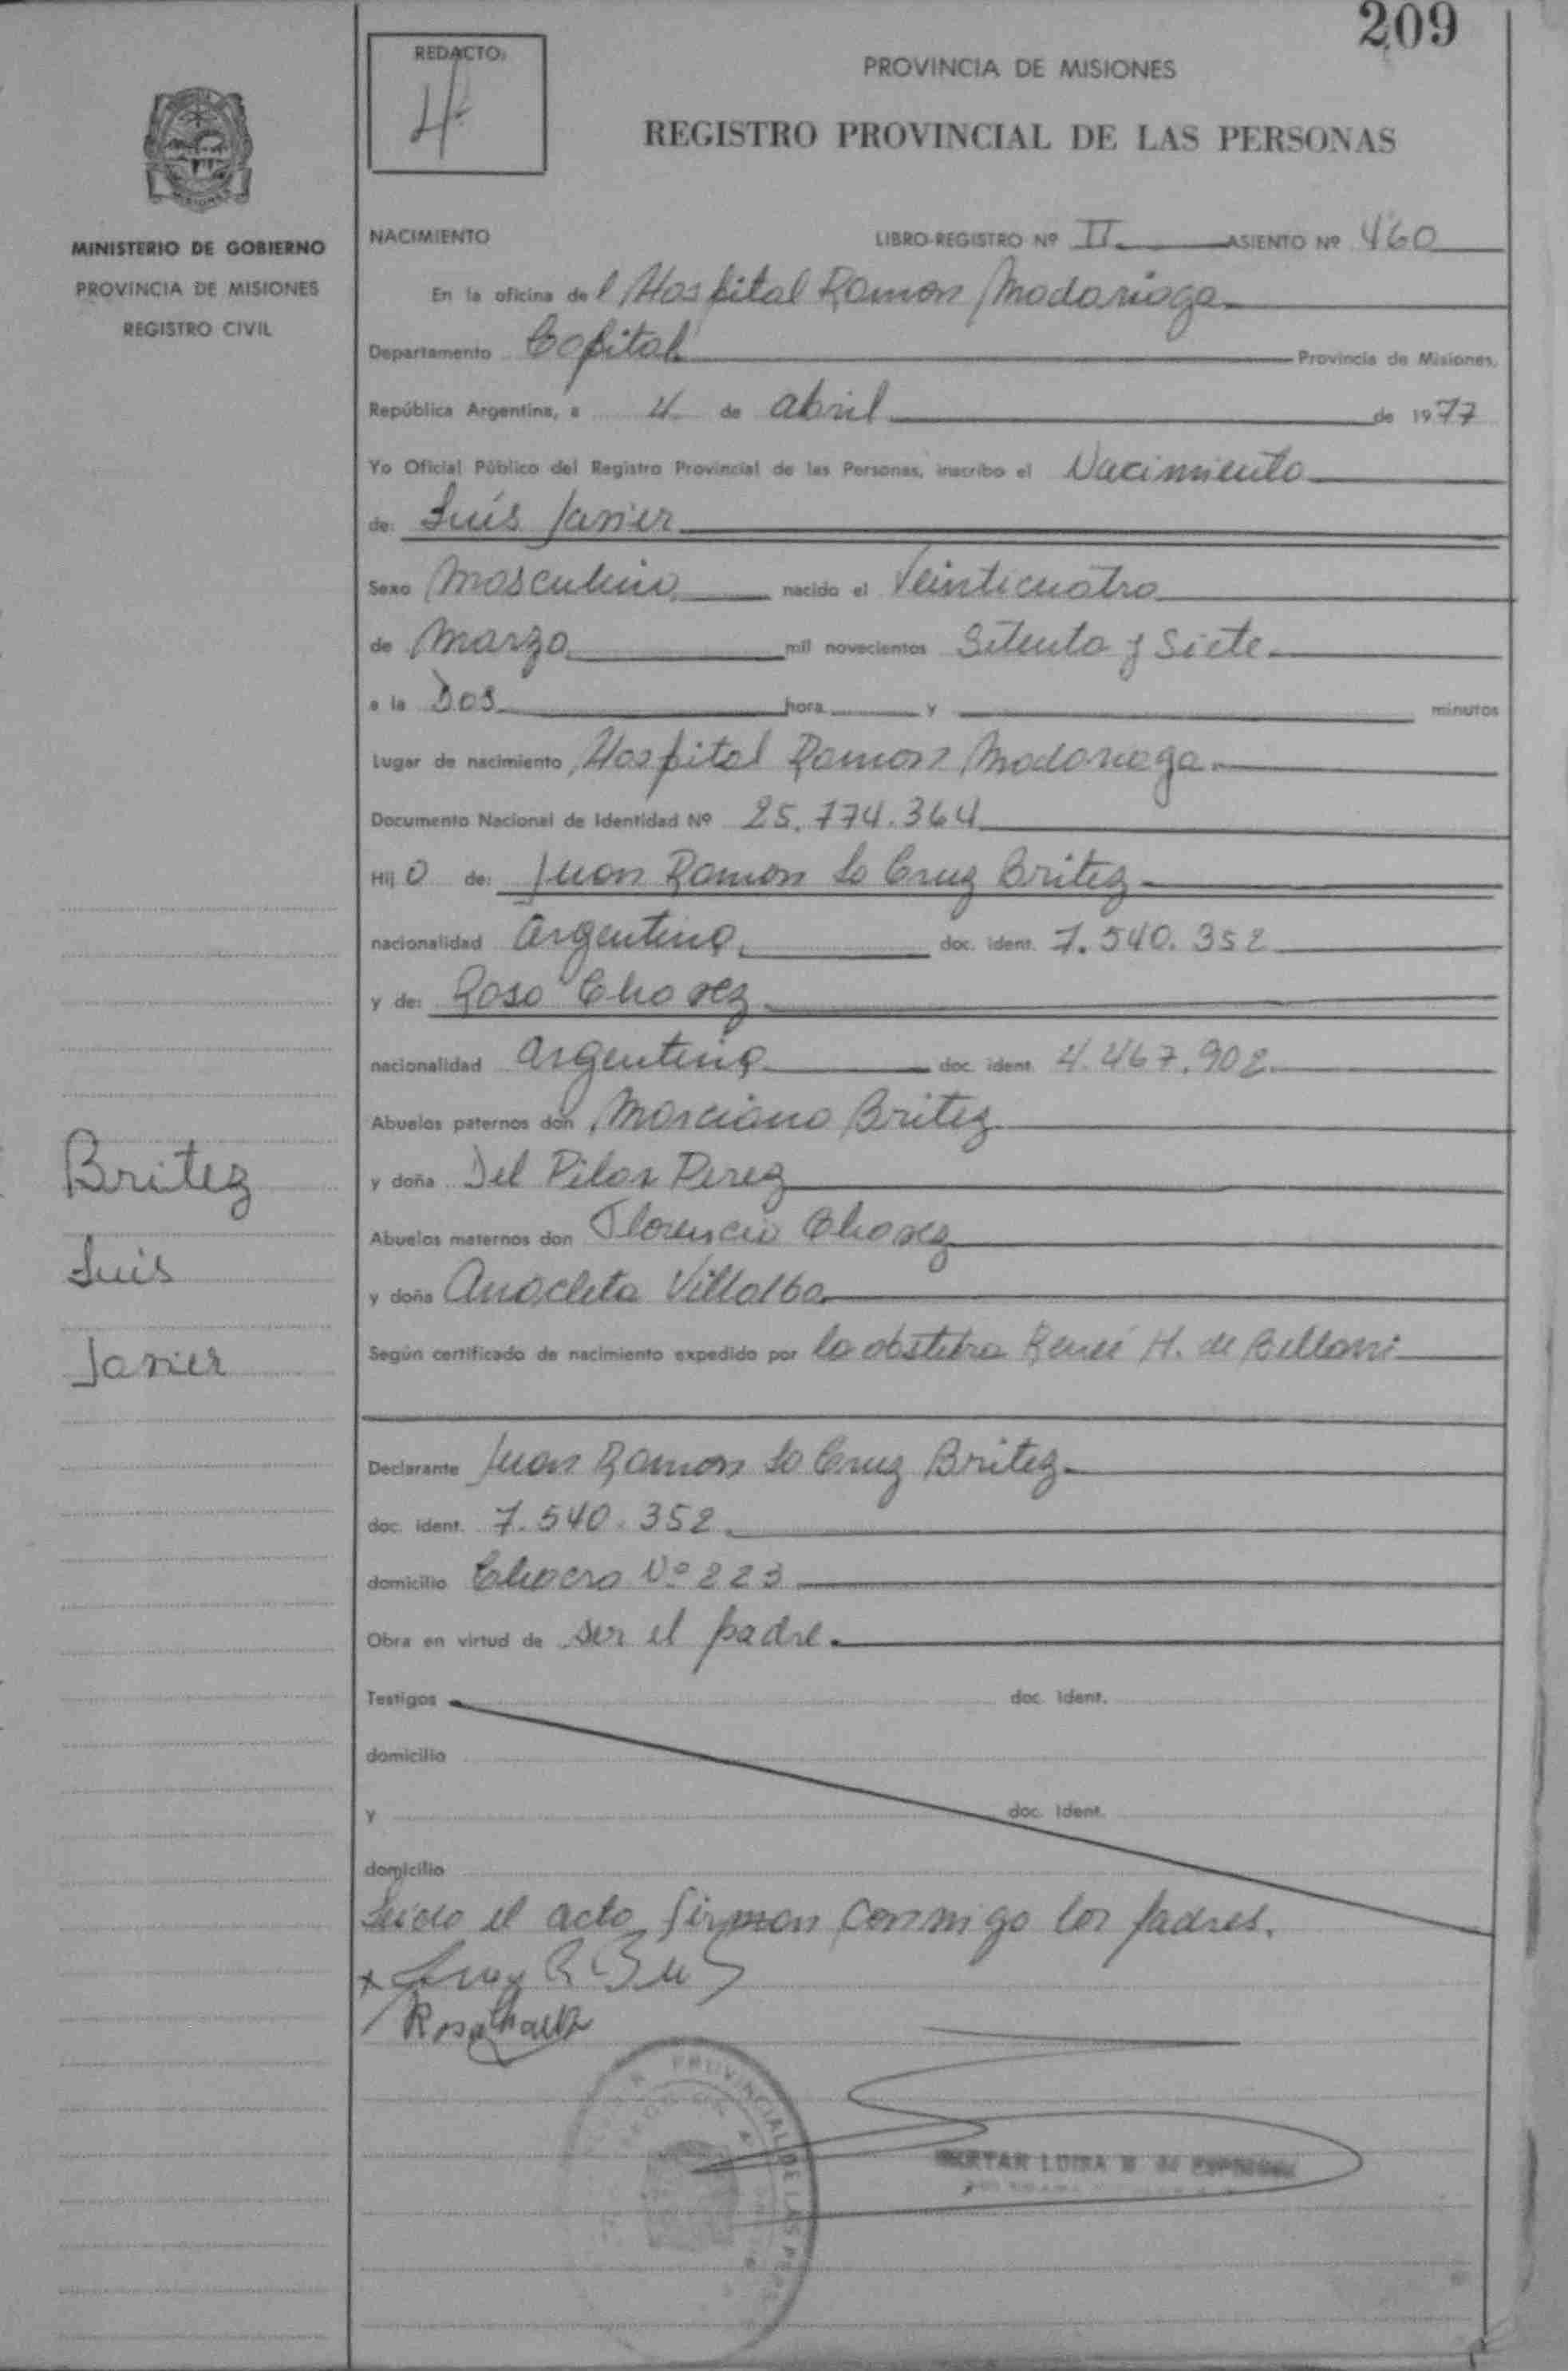 209
REDACTO:
4
PROVINCIA DE MISIONES
REGISTRO PROVINCIAL DE LAS PERSONAS
MINISTERIO DE GOBIERNO
PROVINCIA DE MISIONES
REGISTRO CIVIL
NACIMIENTO LIBRO-REGISTRO Nº II ASIENTO Nº 460
En la oficina del Hospital Ramon Madariaga
Departamento Capital Provincia de Misiones,
República Argentina, a 4 de abril de 1977
Yo Oficial Público del Registro Provincial de las Personas, inscribo el Nacimiento
de: Luís Javier
Sexo Masculino nacido el Veinticuatro
de Marzo mil novecientos Setenta y Siete
a la Dos hora y minutos
Lugar de nacimiento Hospital Ramon Madariaga
Documento Nacional de Identidad Nº 25.774.364
Hijo de: Juan Ramon La Cruz Britez
nacionalidad argentina doc. ident. 7.540.352
y de: Rosa Chavez
nacionalidad argentina doc. ident. 4.467.902
Abuelos paternos don Marciano Britez
y doña Del Pilar Perez
Abuelos maternos don Florencio Chavez
y doña Anacleta Villalba
Según certificado de nacimiento expedido por la obstetra Reneé H. de Bellani
Declarante Juan Ramon La Cruz Britez
doc. ident. 7.540.352
domicilio Chacra Nº 223
Obra en virtud de ser el padre.
Testigos doc. Ident.
domicilio
y doc. Ident.
domicilio
Leido el acta firman conmigo los padres.
Rosa Chavez
PROVINCIAL DE LAS
LUISA
Britez
Luis
Javier